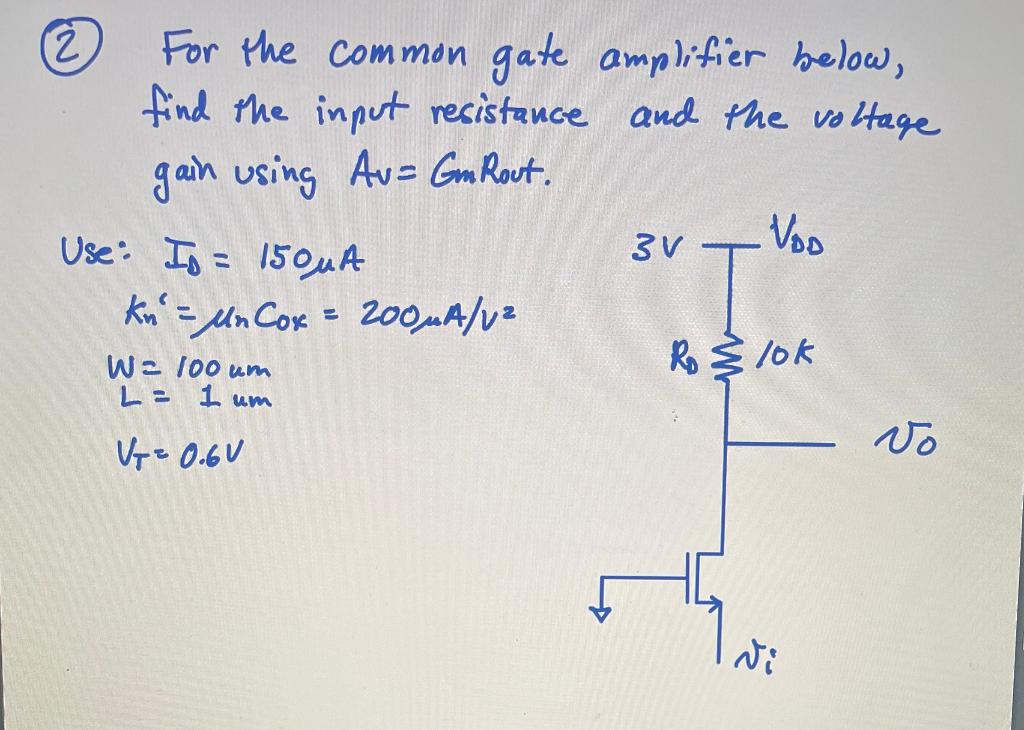 2 For the common gate amplifier below,
find the input resistance and the voltage
gain using Av = Gm Rout.
Use: ID = 150μA
Kn' = μn Cox = 200μA/V²
W = 100 um
L = 1 um
VT = 0.6V
3V VDD
RD 10K
vo
vi